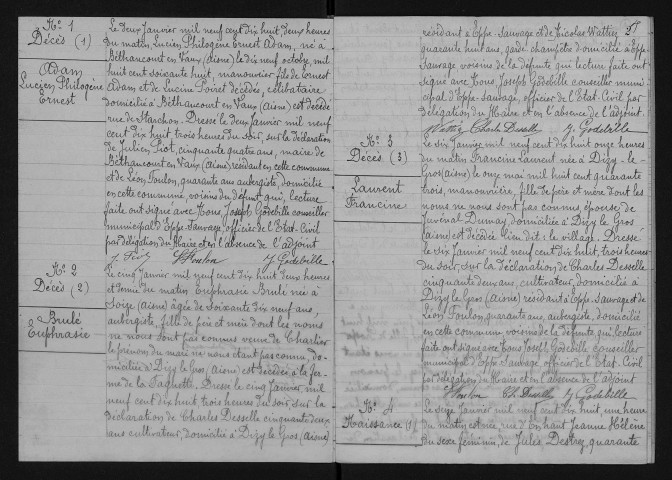 N° 1
Décès (1)
Adam
Lucien Philogène
Ernest
Le deux Janvier mil neuf cent dix huit, deux heures
du matin, Lucien Philogène Ernest Adam, né à
Béthancourt en Vaux (Aisne) le dix neuf octobre mil
huit cent soixante huit, manouvrier fils de Ernest
Adam et de Lucine Poiret décédés, célibataire
domicilié à Béthancourt en Vaux (Aisne) est décédé
rue de Hanchon. Dressé le deux Janvier mil neuf
cent dix huit trois heures du soir, sur la déclaration
de Julien Piot, cinquante quatre ans, maire de
Béthancourt en Vaux (Aisne) résidant en cette commune
et de Léon Toulon, quarante ans aubergiste, domicilié
en cette commune voisins du défunt qui, lecture
faite ont signé avec Nous Joseph Godebille conseiller
municipal d'Eppe-Sauvage, officier de l'Etat-Civil
par délégation du Maire et en l'absence de l'adjoint
J. Piot Toulon J. Godebille
N° 2
Décès (2)
Brulé
Euphrasie
Le cinq Janvier mil neuf cent dix huit deux heures
et demie du matin Euphrasie Brulé née à
Soize (Aisne) âgée de soixante dix neuf ans,
aubergiste, fille de père et mère dont les noms
ne nous sont pas connus veuve de Charlier
le prénom du mari ne nous étant pas connu, do-
miciliée à Dizy le Gros (Aisne) est décédée à la fer-
me de la Taquette. Dressé le cinq Janvier mil
neuf cent dix huit trois heures du soir, sur la
déclaration de Charles Desselle cinquante deux
ans cultivateur, domicilié à Dizy le Gros (Aisne)
résidant à Eppe-Sauvage et de Nicolas Wattiez
quarante huit ans, garde-champêtre domicilié à Eppe
Sauvage voisins de la défunte qui lecture faite ont
signé avec Nous Joseph Godebille conseiller muni-
cipal d'Eppe-Sauvage, officier de l'Etat-Civil par
délégation du Maire et en l'absence de l'adjoint.
Wattiez Charles Desselle J. Godebille
N° 3
Décès (3)
Laurent
Francine
Le six Janvier mil neuf cent dix huit onze heures
du matin Francine Laurent née à Dizy-le-
Gros (Aisne) le onze mai mil huit cent quarante
trois, manouvrière, fille de père et mère dont les
noms ne nous sont pas connus épouse de
Juvénal Dumay domiciliée à Dizy le Gros
(Aisne) est décédée lieu dit : le village. Dressé
le six Janvier mil neuf cent dix huit, trois heures
du soir, sur la déclaration de Charles Desselle
cinquante deux ans, cultivateur, domicilié à
Dizy le Gros (Aisne) résidant à Eppe-Sauvage et de
Léon Toulon, quarante ans, aubergiste, domicilié
en cette commune voisins de la défunte qui, lecture
faite ont signé avec Nous Joseph Godebille conseiller
municipal d'Eppe-Sauvage officier de l'Etat-Civil
par délégation du Maire et en l'absence de l'adjoint
Toulon Ch. Desselle J. Godebille
N° 4
Naissance (1)
Le seize Janvier mil neuf cent dix huit, une heure
du matin est née, rue d'en haut Jeanne Hélène
du sexe féminin, de Jules Destrez, quarante